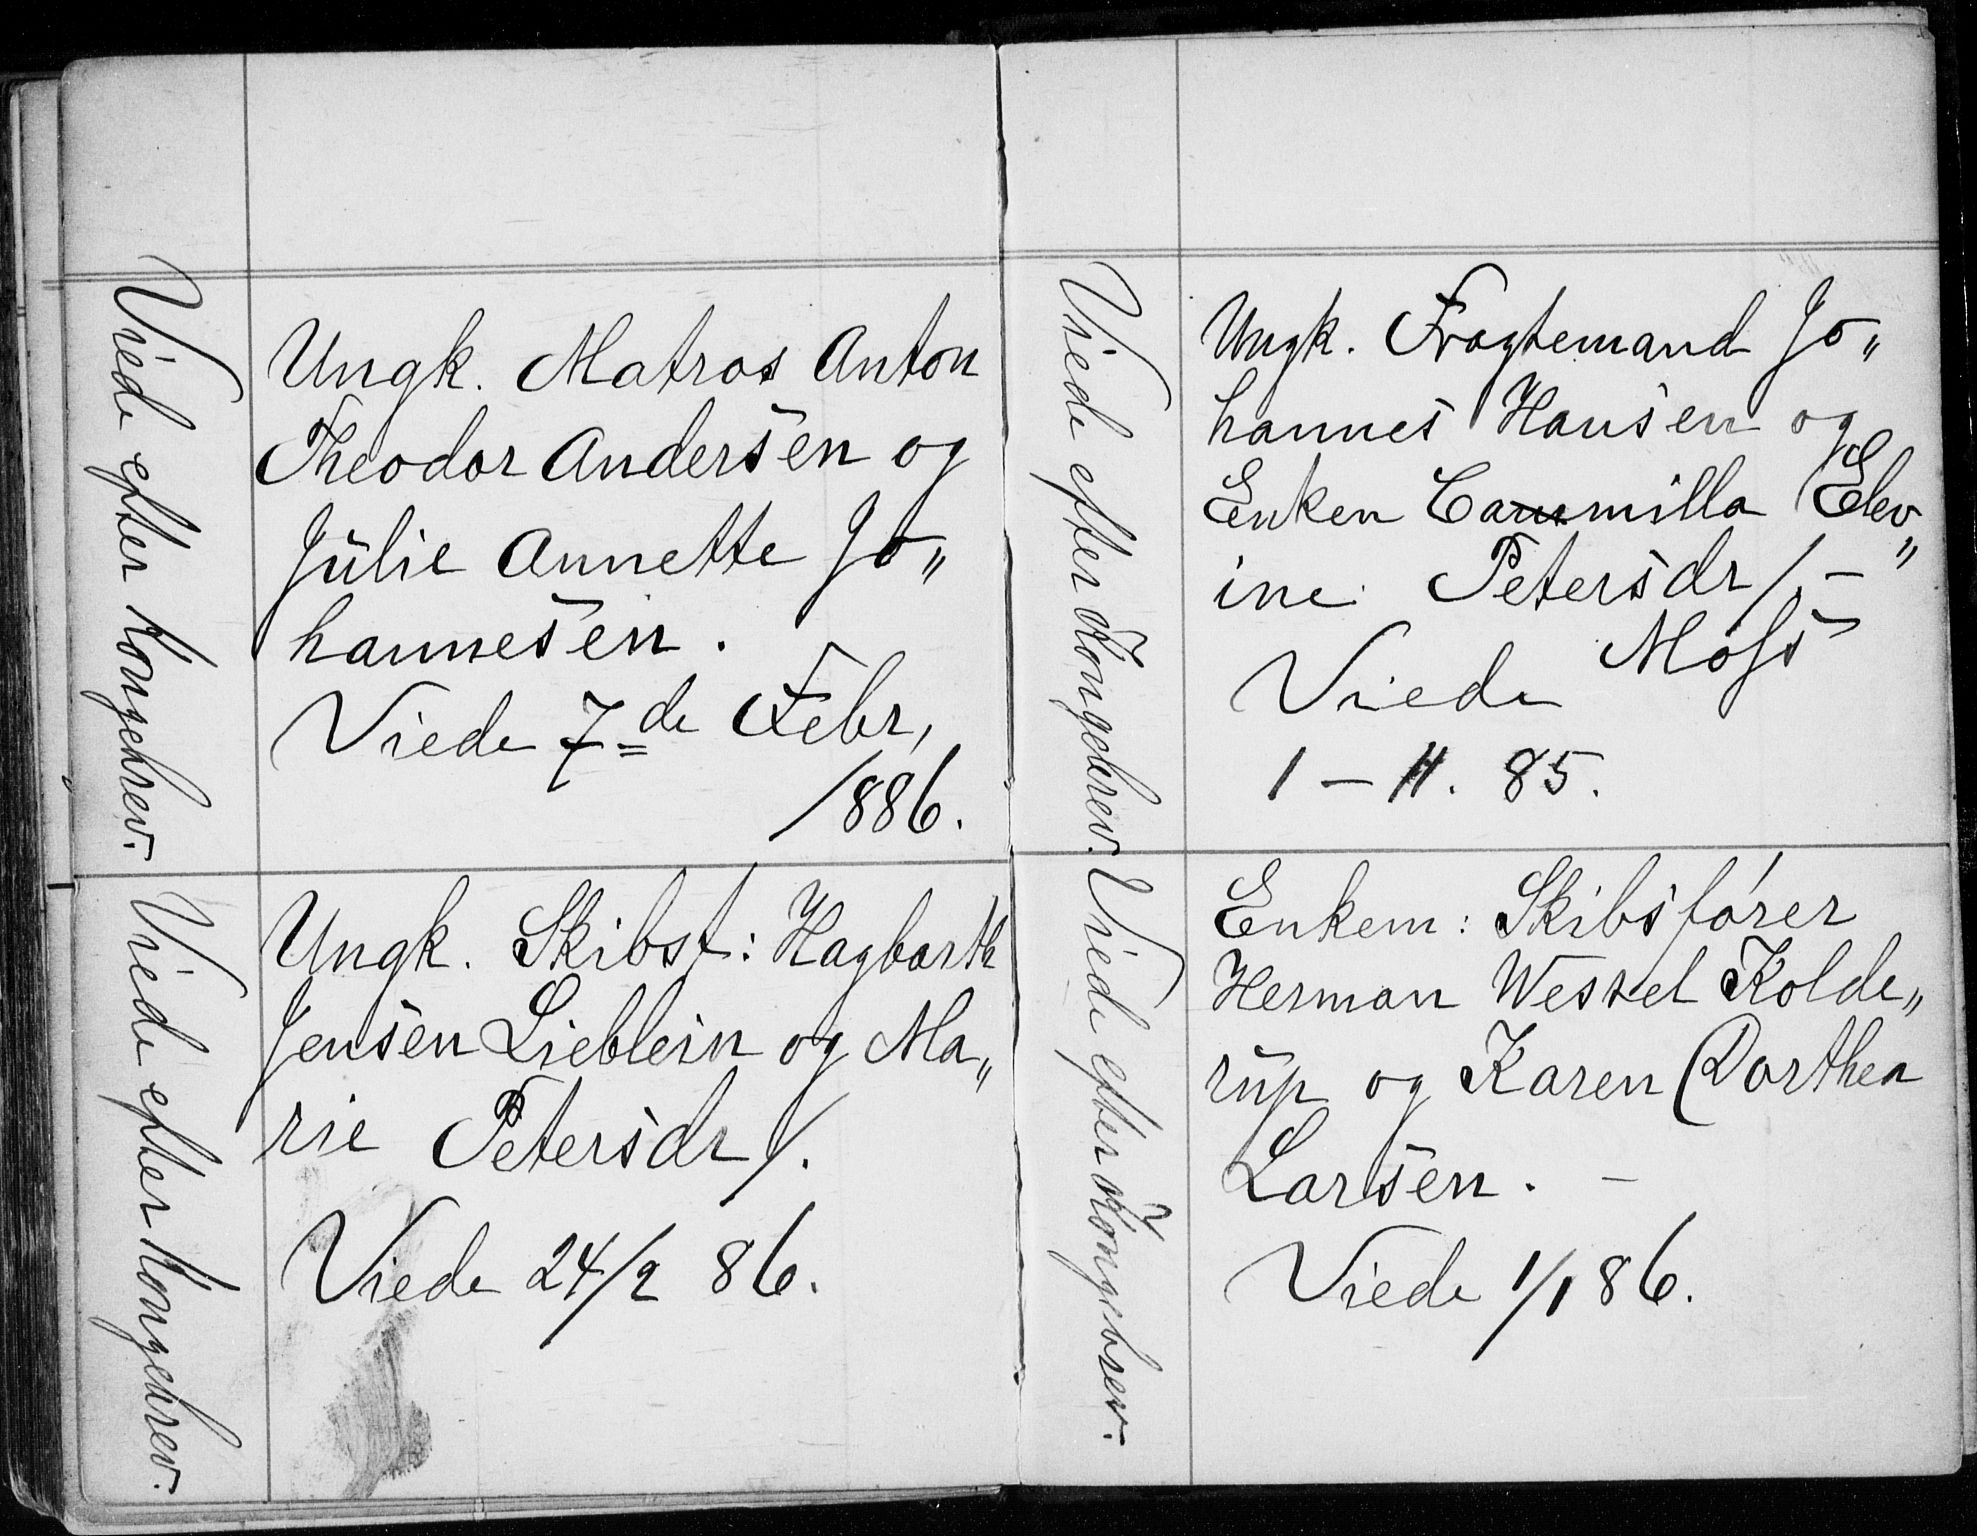 Viede efter Kongebrev.
Ungk. Matros Anton
Theodor Andersen og
Julie Annette Jo„
hannesen.
Viede 7de Febr,
1886.
Viede efter Kongebrev.
Ungk. Skibst: Hagbarth
Jensen Lieblein og Ma„
rie Petersdr /.
Viede 24/2 86.
Viede efter Kongebrev.
Ungk. Fragtemand Jo„
hannes Hansen og
Enken Cammilla Elev„
ine Petersdr /. –
Moss
Viede
1 – 11. 85.
Viede efter Kongebrev.
Enkem: Skibsfører
Herman Wessel Kolde„
rup og Karen Dorthea
Larsen. –
Viede 1/1 86.